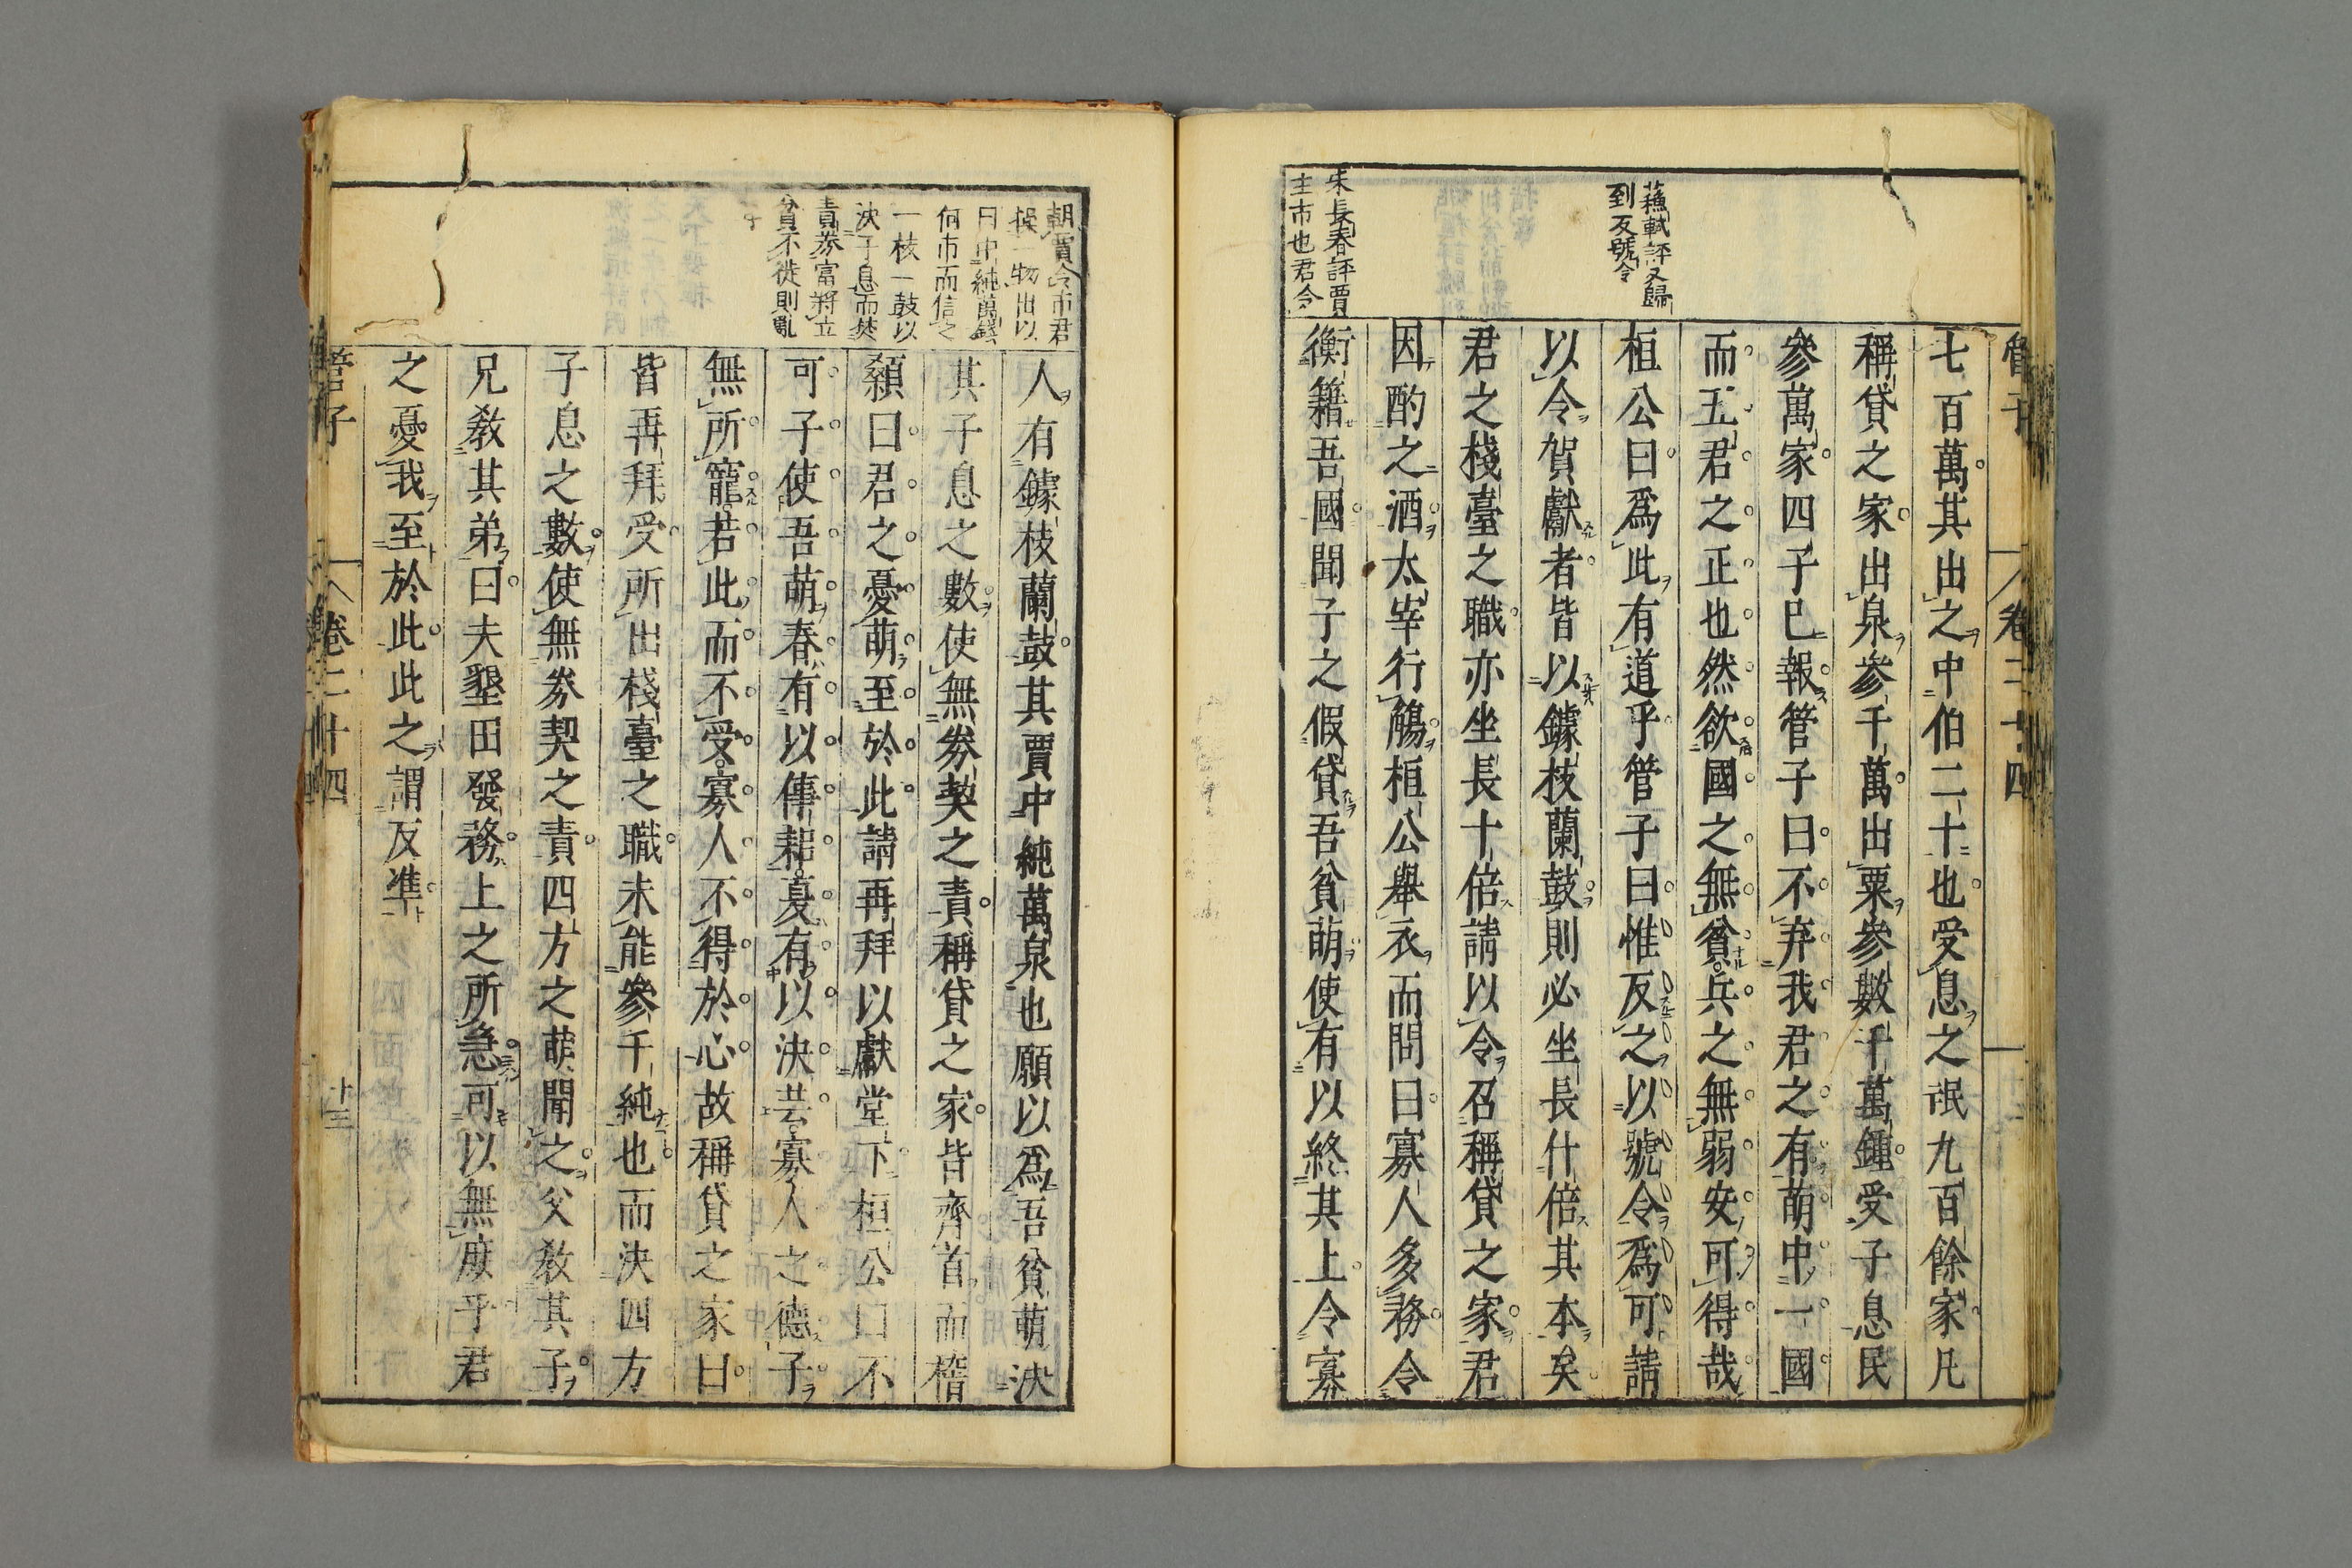 管子
卷二十四
蘓軾評又歸
到反號令
朱長春評賈
主市也君令
七百萬其出之中伯二十也受息之氓九百餘家凡
稱貸之家出泉參千萬出粟參數千萬鍾受子息民
參萬家四子已報管子曰不弃我君之有萌中一國
而五君之正也然欲國之無貧兵之無弱安可得哉
桓公曰爲此有道乎管子曰惟反之以號令爲可請
以令賀獻者皆以鐻枝蘭鼓則必坐長什倍其本矣
君之棧臺之職亦坐長十倍請以令召稱貸之家君
因酌之酒太宰行觴桓公舉衣而問曰寡人多務令
衡籍吾國聞子之假貸吾貧萌使有以終其上令寡
朝賈令市君
操一物出以
日中純萬錢
何市而信之
一枝一鼓以
決子息而焚
責劵富將立
貧不徙則亂
人有鐻枝蘭鼓其賈中純萬泉也願以爲吾貧萌決
其子息之數使無劵契之責稱貸之家皆齊首而稽
顙曰君之憂萌至於此請再拜以獻堂下桓公曰不
可子使吾萌春有以傳耜夏有以決芸寡人之德子
無所寵若此而不受寡人不得於心故稱貸之家曰
皆再拜受所出棧臺之職未能參千純也而決四方
子息之數使無劵契之責四方之萌聞之父敎其子
兄敎其弟曰夫墾田發務上之所急可以無庶乎君
之憂我至於此此之謂反準
管子
卷二十四
十三